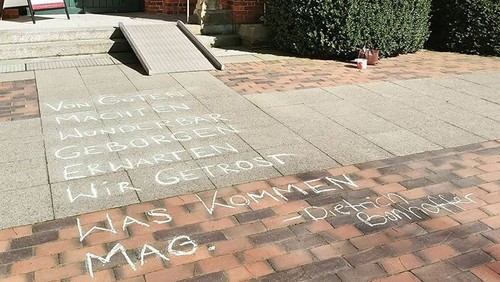 VON GUTEN
MÄCHTEN
WUNDERBAR
GEBORGEN
ERWARTEN
WIR GETROST
WAS KOMMEN
MAG.
- Dietrich
Bonhoeffer